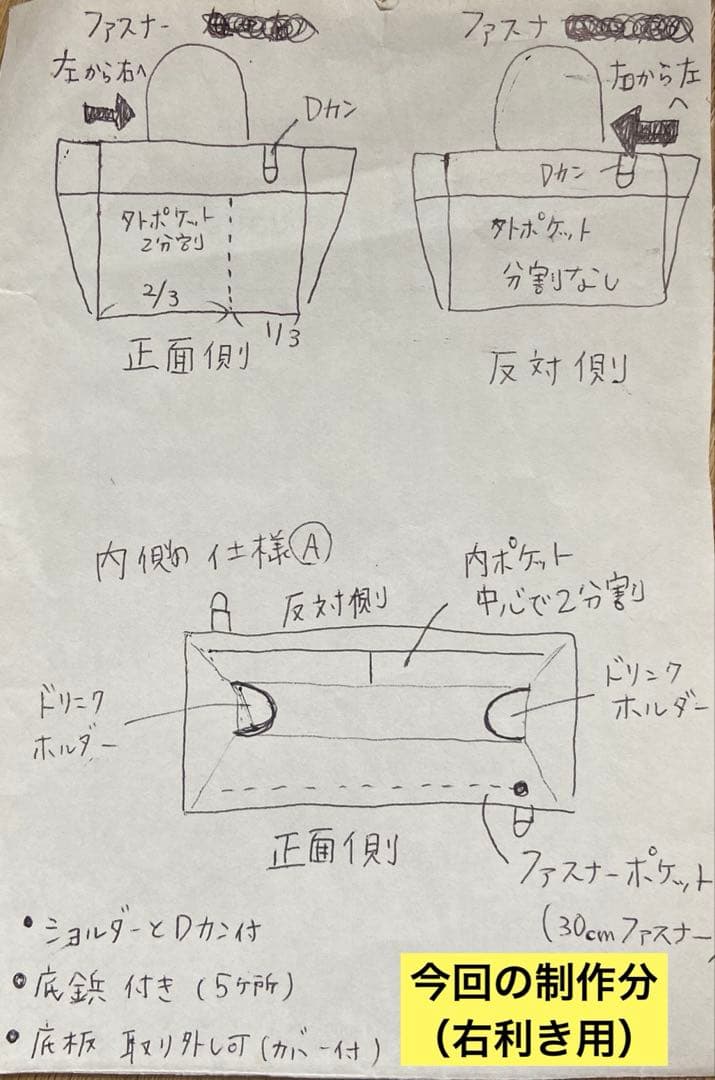 ファスナー
左から右へ
Dカン
外ポケット
2分割
2/3
1/3
正面側
ファスナー
右から左
へ
Dカン
外ポケット
分割なし
反対側
内側の仕様Ⓐ
反対側
内ポケット
中心で2分割
ドリンク
ホルダー
ドリンク
ホルダー
正面側
ファスナーポケット
(30cmファスナー)
・ショルダーとDカン付
・底鋲付き(5ケ所)
・底板 取り外し可(カバー付)
今回の制作分
(右利き用)